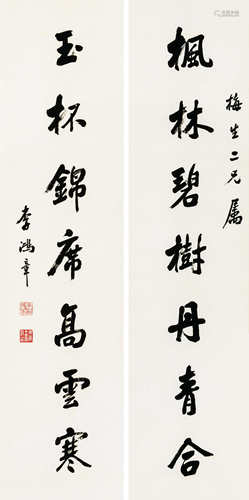 梅生二兄属
楓林碧樹丹青合
玉杯錦席高雲寒
李鴻章